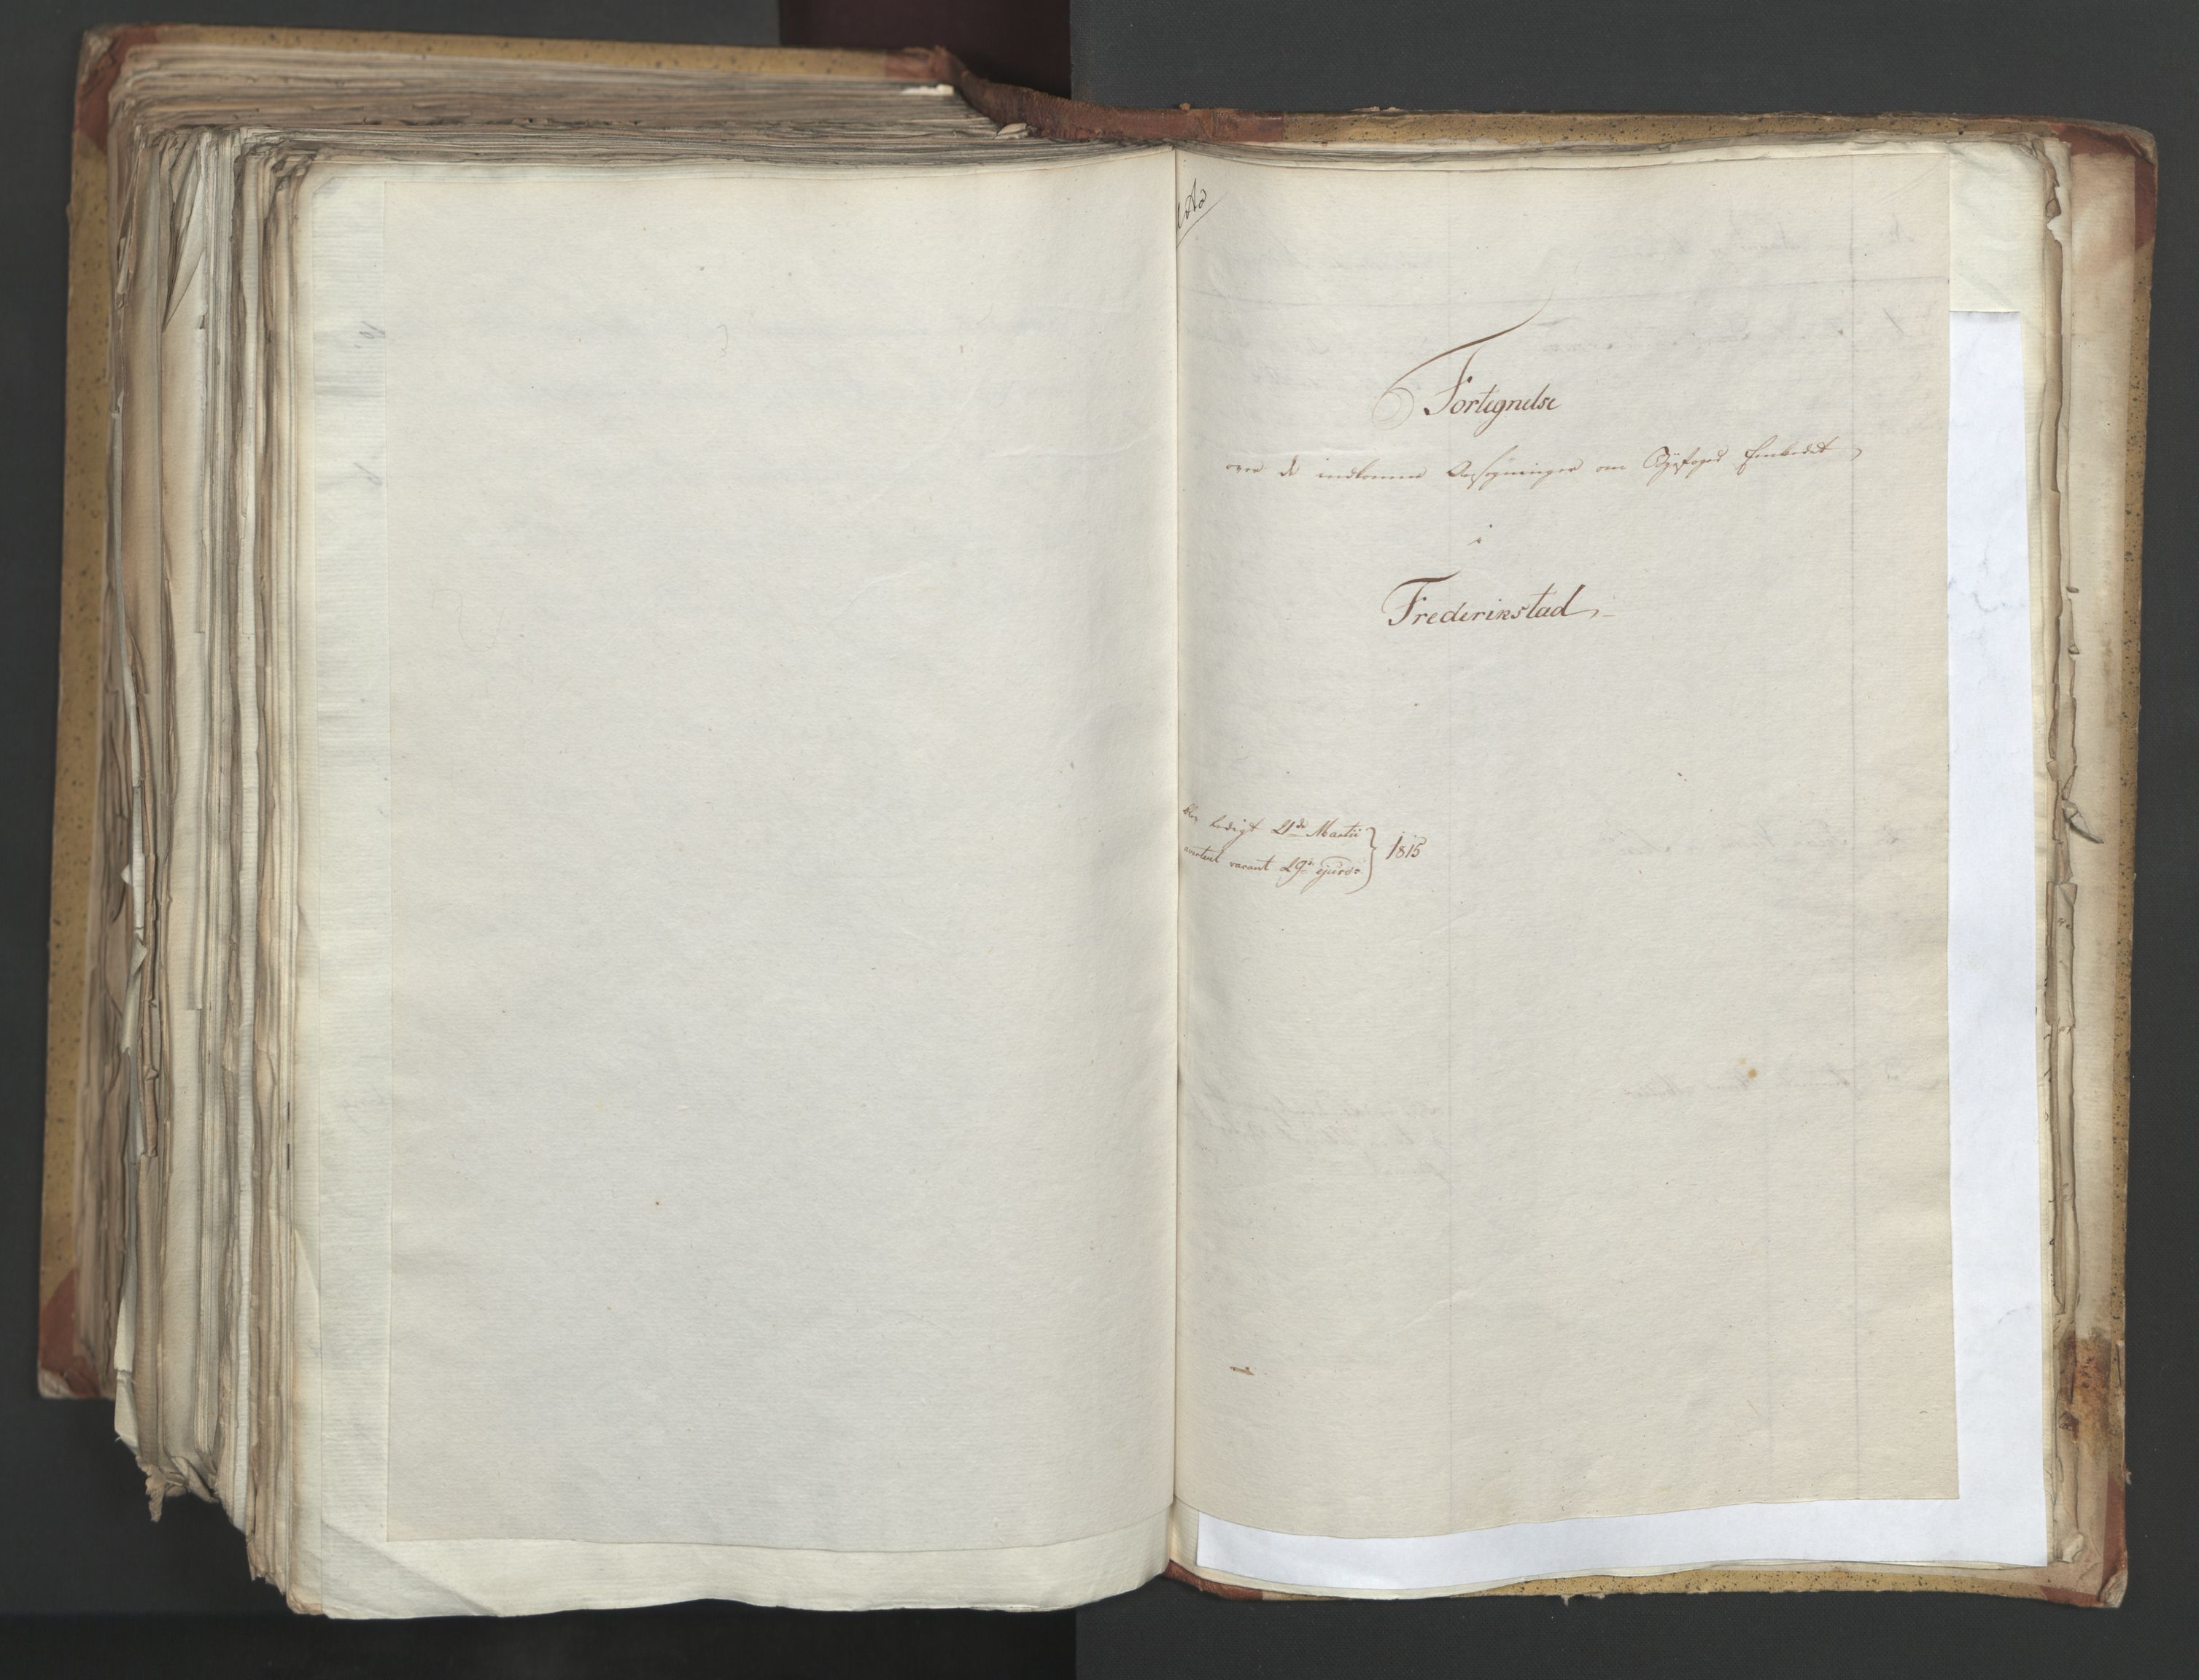 Fortegnelse
over de indkomne Ansøgninger om Byefoged Embedet
i
Frederikstad
blev ledigt 21de Martii } 1815
avertert vacant 29de ejusd: